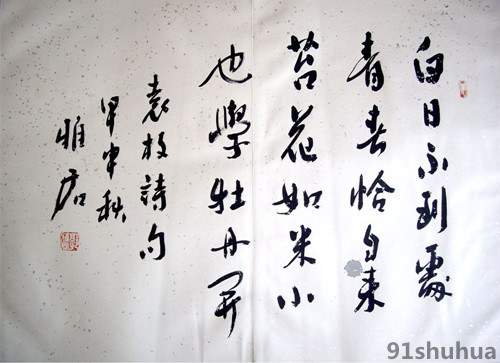 白日不到處
青春恰自來
苔花如米小
也學牡丹開
袁枚詩句
甲申秋
91shuhua